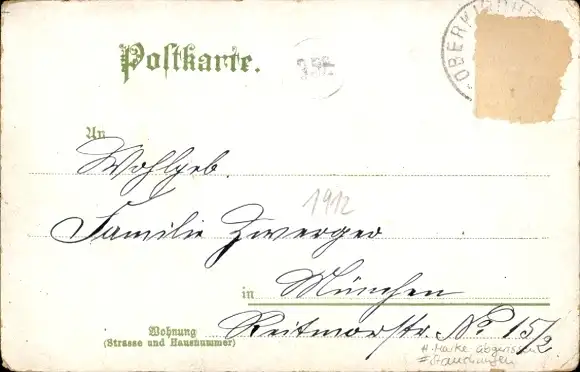 OBERKIRCH
Postkarte.
An
Wohlgeb.
1912
Familie Zwerger
in München
Wohnung
(Strasse und Hausnummer)
Reitmorstr. No 15/2
# Marke abgerissen
= Stauchungen